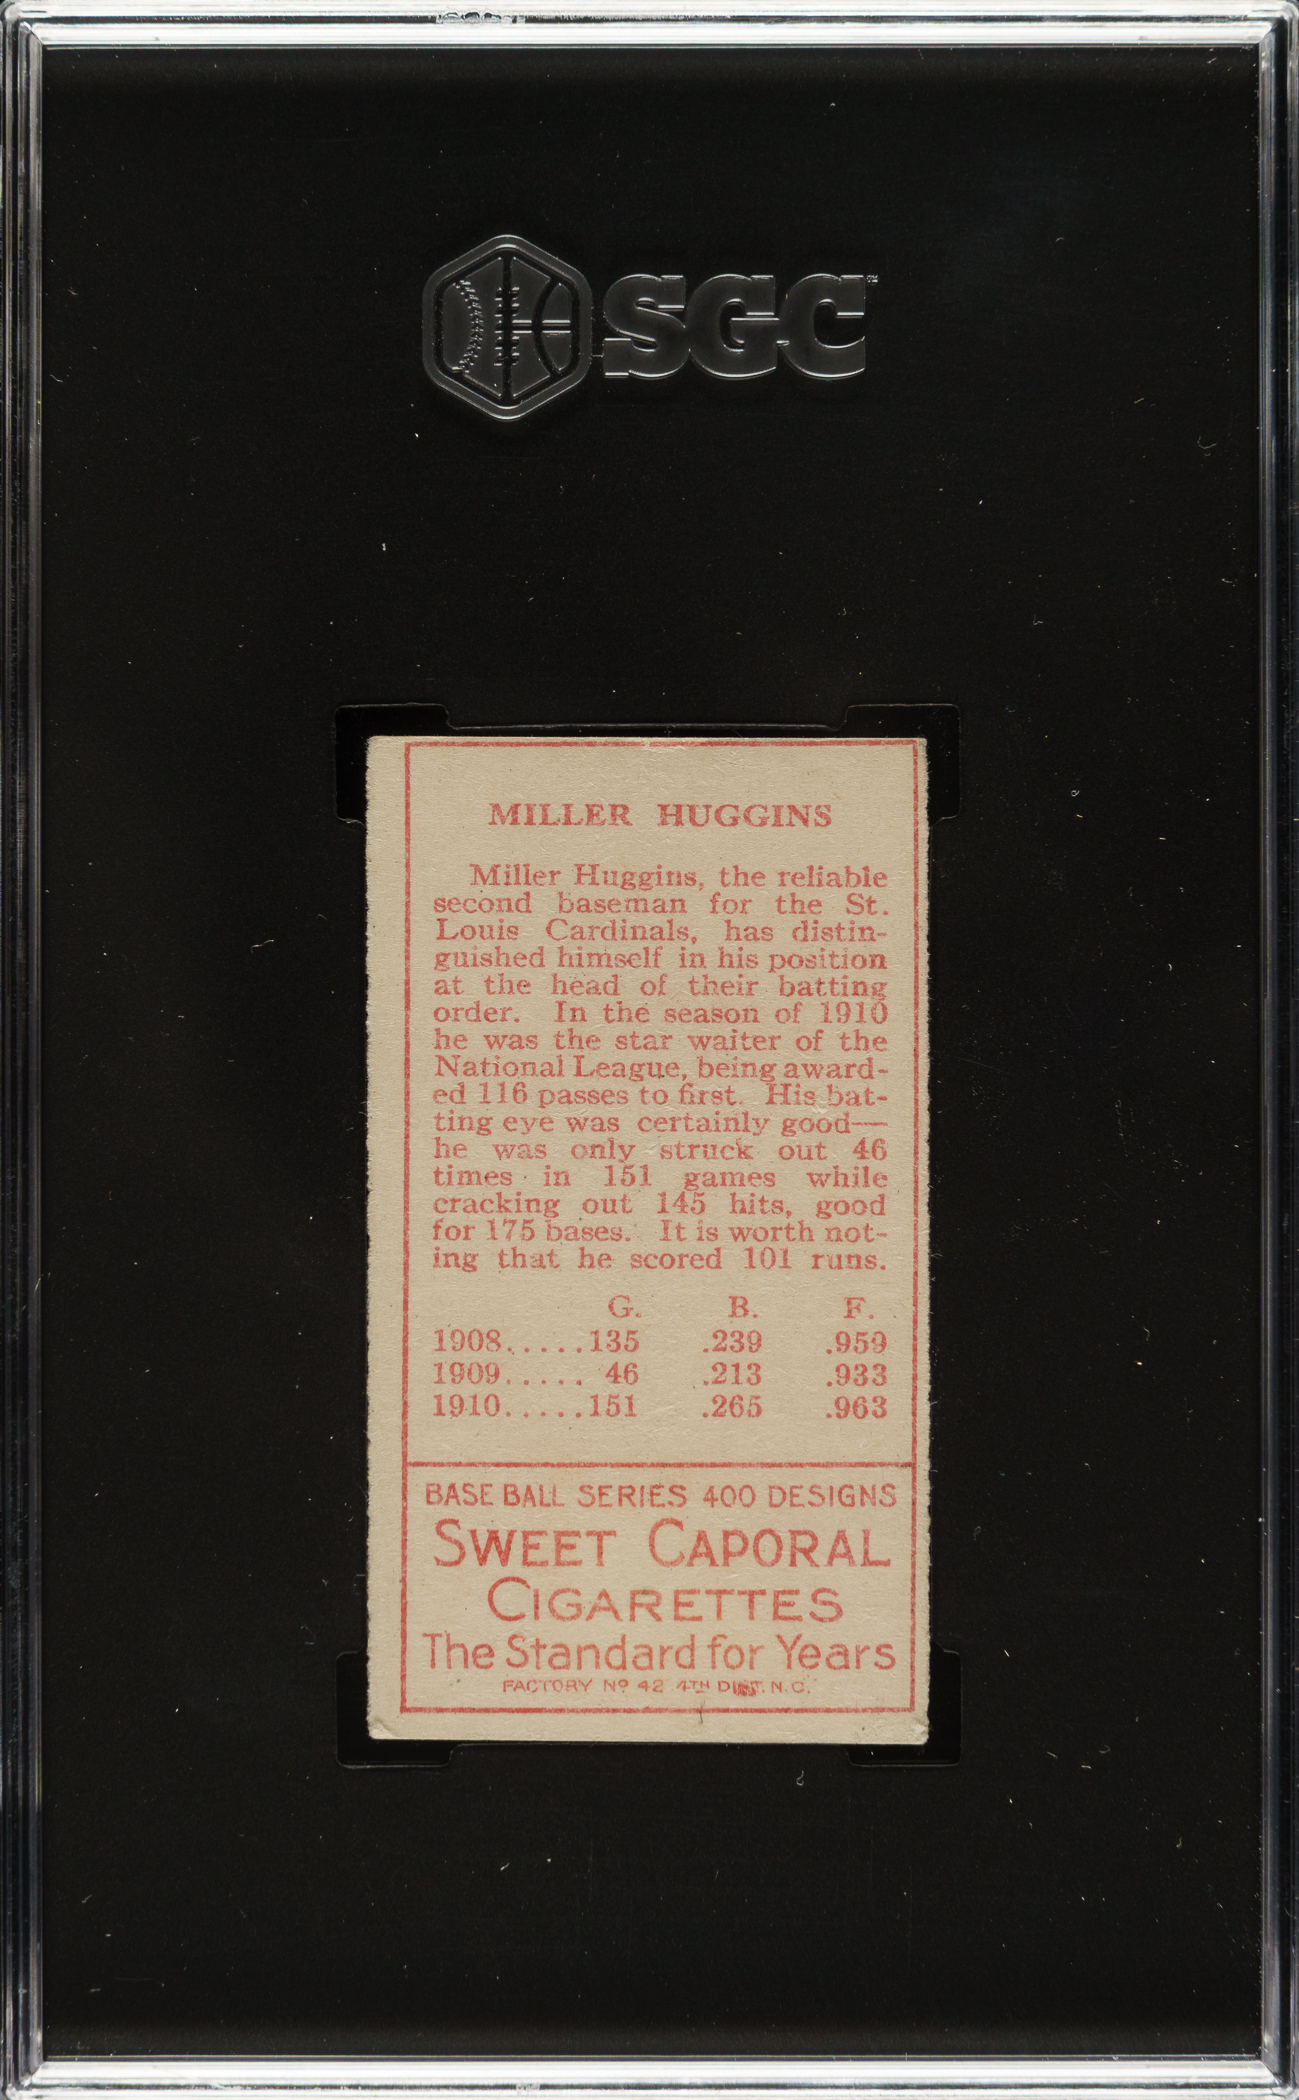 SGC™
MILLER HUGGINS
Miller Huggins, the reliable
second baseman for the St.
Louis Cardinals, has distin-
guished himself in his position
at the head of their batting
order. In the season of 1910
he was the star waiter of the
National League, being award-
ed 116 passes to first. His bat-
ting eye was certainly good—
he was only struck out 46
times in 151 games while
cracking out 145 hits, good
for 175 bases. It is worth not-
ing that he scored 101 runs.
G. B. F.
1908.....135 .239 .959
1909..... 46 .213 .933
1910.....151 .265 .963
BASE BALL SERIES 400 DESIGNS
SWEET CAPORAL
CIGARETTES
The Standard for Years
FACTORY Nº 42 4TH DIST. N.C.